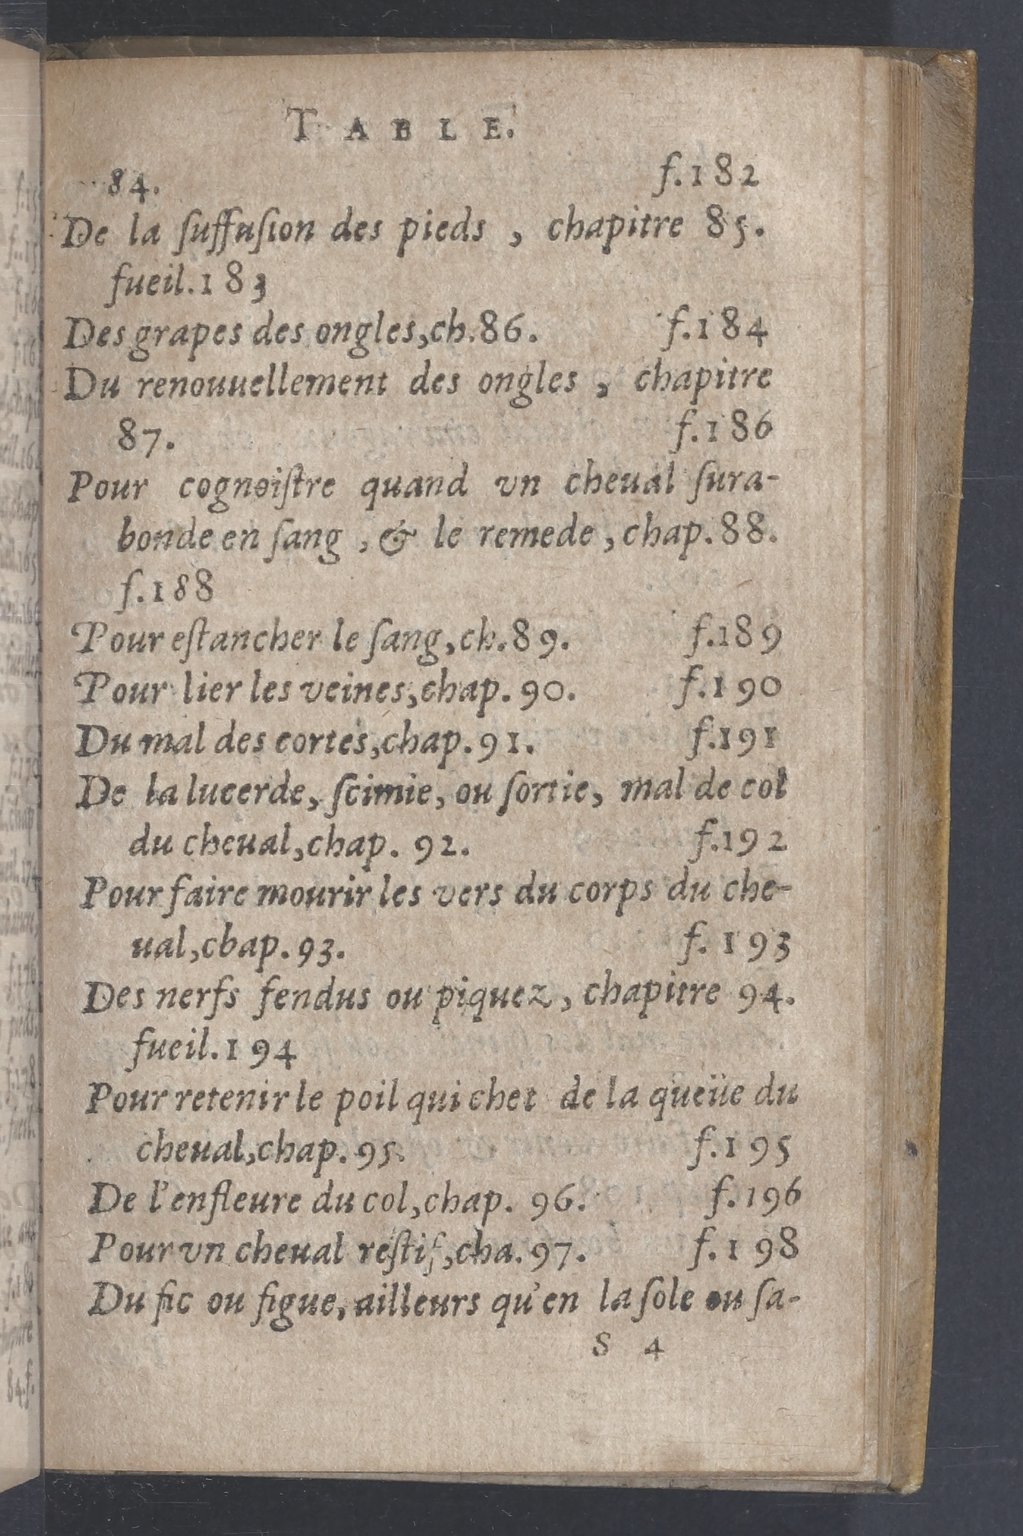 TABLE.
84. f.182
De la ſuffuſion des pieds , chapitre 85.
fueil.183
Des grapes des ongles,ch.86. f.184
Du renouuellement des ongles , chapitre
87. f.186
Pour cognoiſtre quand vn cheual ſura-
bonde en ſang , & le remede , chap. 88.
f.188
Pour eſtancher le ſang,ch.89. f.189
Pour lier les veines,chap. 90. f.190
Du mal des cortes,chap.91. f.191
De la lucerde, ſcimie, ou ſortie, mal de col
du cheual,chap. 92. f.192
Pour faire mourir les vers du corps du che-
ual,chap.93. f.193
Des nerfs fendus ou piquez, chapitre 94.
fueil.194
Pour retenir le poil qui chet de la queüe du
cheual,chap.95. f.195
De l'enfleure du col,chap. 96. f.196
Pour vn cheual reſtif,cha.97. f.198
Du fic ou figue, ailleurs qu'en la ſole ou ſa-
S 4